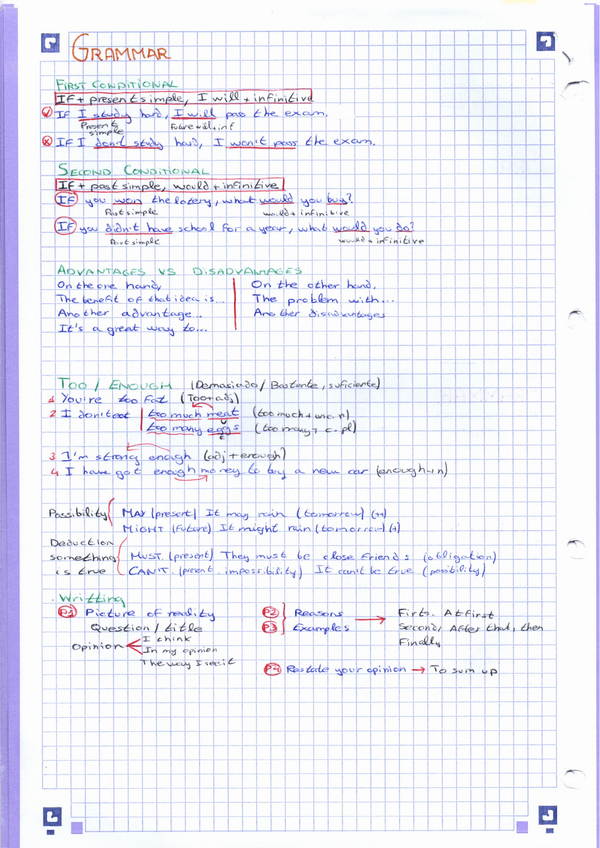 GRAMMAR
FIRST CONDITIONAL
IF + present simple, I will + infinitive
IF I study hard, I will pass the exam.
Present simple
Future will + inf
IF I don't study hard, I won't pass the exam.
SECOND CONDITIONAL
IF + past simple, would + infinitive
IF you won the lotery, what would you buy?
Past simple
would + infinitive
IF you didn't have school for a year, what would you do?
Past simple
would + infinitive
ADVANTAGES VS DISADVANAGES
On the one hand,
The benefit of that idea is...
Another advantage...
It's a great way to...
On the other hand,
The problem with...
Another disadvantages
TOO / ENOUGH (Demasiado / Bastante, suficiente)
1 You're too fat (Too + adj)
2 I don't eat too much meat (too much + unc. n)
too many eggs (too many + c. pl)
3 I'm strong enough (adj + enough)
4 I have got enough money to buy a new car (enough + n)
Possibility MAY (present) It may rain (tomorrow) (+)
MIGHT (Future) It might rain (tomorrow) (-)
Deduction something is true
MUST (present) They must be close friends (obligation)
CAN'T (present impossibility) It can't be true (posibility)
Writting
P1 Picture of reality
Question / title
Opinion
I think
In my opinion
The way I see it
P2 Reasons
P3 Examples
Firts. At first
Second, After that, then
Finally
P4 Restate your opinion → To sum up